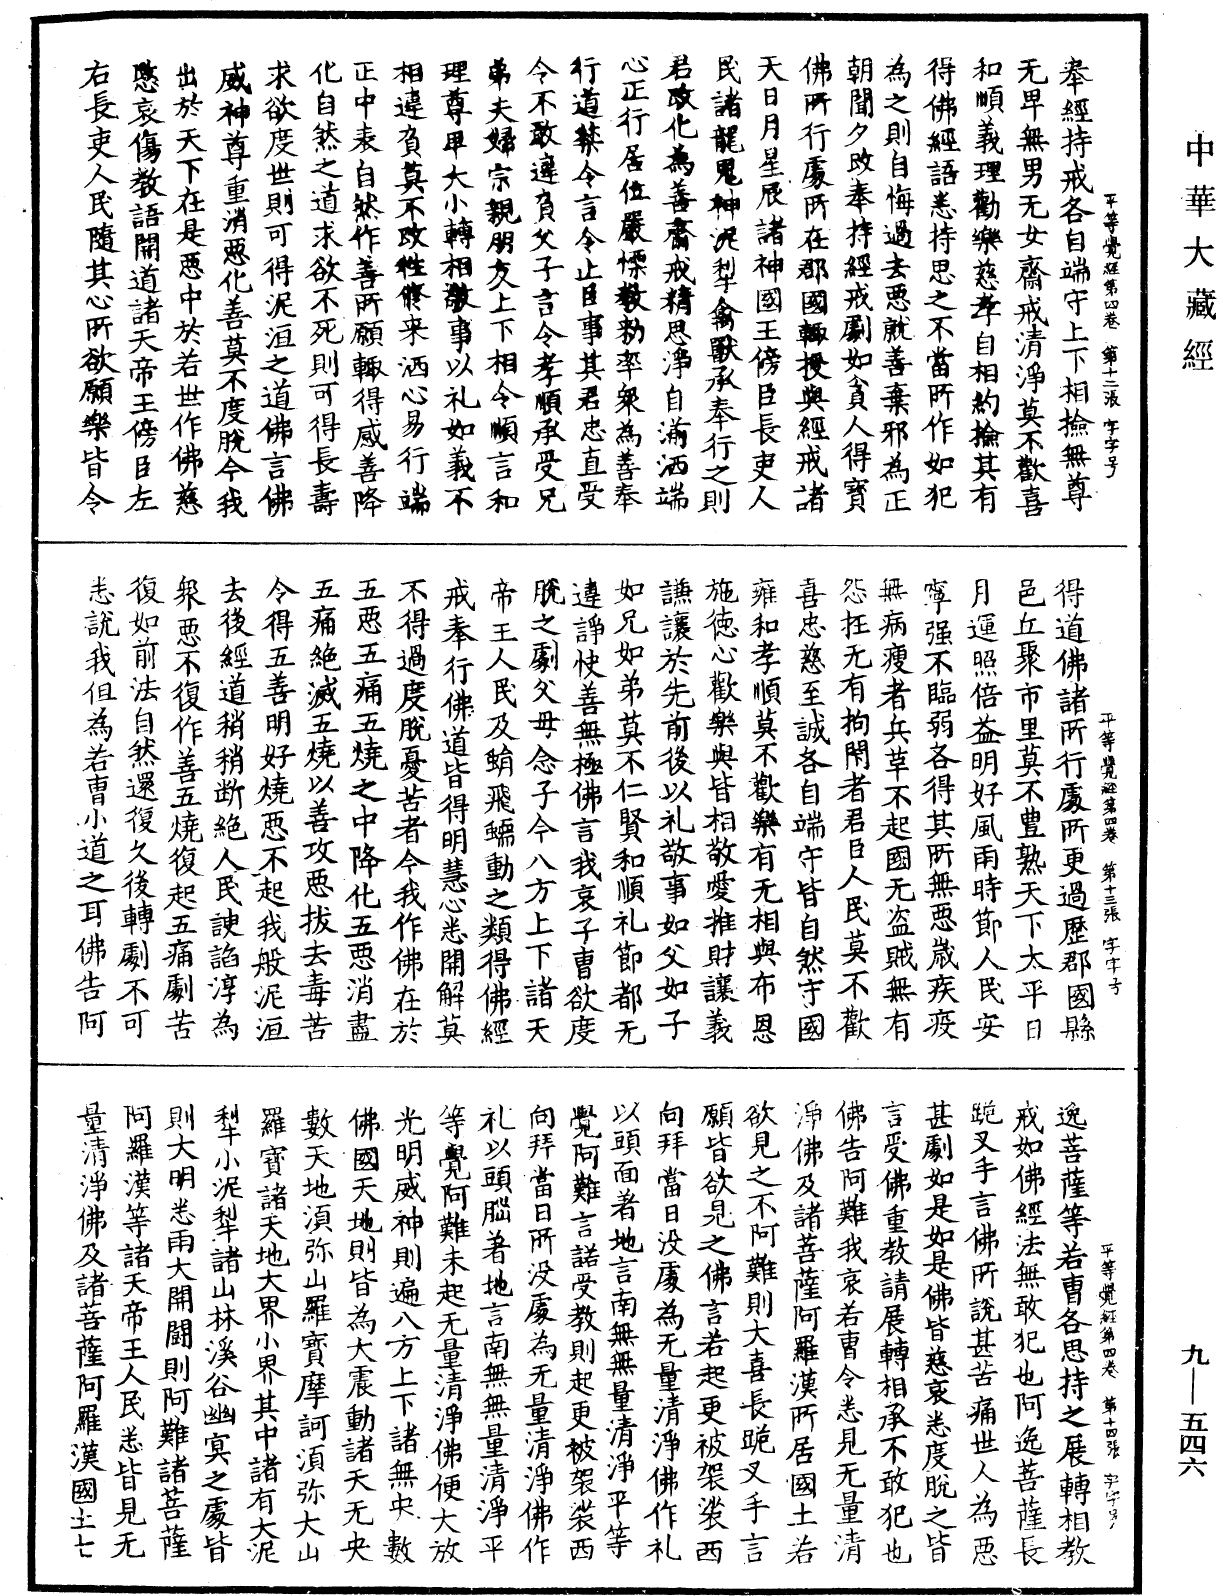 中華大藏經
奉經持戒各自端守上下相撿無尊
平等覺經第四卷 第十二張 字字号
无卑無男无女齋戒清淨莫不歡喜
和順義理勸樂慈孝自相約撿其有
得佛經語悉持思之不當所作如犯
為之則自悔過去惡就善棄邪為正
朝聞夕改奉持經戒劇如貧人得寶
佛所行處所在郡國輙授與經戒諸
天日月星辰諸神國王傍臣長吏人
民諸龍鬼神泥犁禽獸承奉行之則
君改化為善齋戒精思淨自湔洒端
心正行居位嚴慄教勑率衆為善奉
行道禁令言令止臣事其君忠直受
令不敢違負父子言令孝順承受兄
弟夫婦宗親朋友上下相令順言和
理尊卑大小轉相敬事以礼如義不
相違負莫不改往修来洒心易行端
正中表自然作善所願輙得感善降
化自然之道求欲不死則可得長壽
求欲度世則可得泥洹之道佛言佛
威神尊重消惡化善莫不度脫今我
出於天下在是惡中於若世作佛慈
愍哀傷教語開道諸天帝王傍臣左
右長吏人民隨其心所欲願樂皆令
得道佛諸所行處所更過歷郡國縣
平等覺經第四卷 第十三張 字字号
邑丘聚市里莫不豊熟天下太平日
月運照倍益明好風雨時節人民安
寧强不臨弱各得其所無惡歲疾疫
無病瘦者兵革不起國无盗賊無有
怨抂无有拘閇者君臣人民莫不歡
喜忠慈至誠各自端守皆自然守國
雍和孝順莫不歡樂有无相與布恩
施德心歡樂與皆相敬愛推財讓義
謙讓於先前後以礼敬事如父如子
如兄如弟莫不仁賢和順礼節都无
違諍快善無極佛言我哀子曹欲度
脫之劇父母念子今八方上下諸天
帝王人民及蜎飛蠕動之類得佛經
戒奉行佛道皆得明慧心悉開解莫
不得過度脫憂苦者今我作佛在於
五惡五痛五燒之中降化五惡消盡
五痛絶滅五燒以善攻惡拔去毒苦
令得五善明好燒惡不起我般泥洹
去後經道稍稍断絶人民諛諂淳為
衆惡不復作善五燒復起五痛劇苦
復如前法自然還復久後轉劇不可
悉說我但為若曹小道之耳佛告阿
逸菩薩等若曹各思持之展轉相教
平等覺經第四卷 第十四張 字字号
戒如佛經法無敢犯也阿逸菩薩長
跪叉手言佛所說甚苦痛世人為惡
甚劇如是如是佛皆慈哀悉度脫之皆
言受佛重教請展轉相承不敢犯也
佛告阿難我哀若曹令悉見无量清
淨佛及諸菩薩阿羅漢所居國土若
欲見之不阿難則大喜長跪叉手言
願皆欲見之佛言若起更被袈裟西
向拜當日没處為无量清淨佛作礼
以頭面著地言南無無量清淨平等
覺阿難言諾受教則起更被袈裟西
向拜當日所没處為无量清淨佛作
礼以頭腦著地言南無無量清淨平
等覺阿難未起无量清淨佛便大放
光明威神則遍八方上下諸無央數
佛國天地則皆為大震動諸天无央
數天地湏弥山羅寶摩訶湏弥大山
羅寶諸天地大界小界其中諸有大泥
犁小泥犁諸山林溪谷幽冥之處皆
則大明悉雨大開闢則阿難諸菩薩
阿羅漢等諸天帝王人民悉皆見无
量清淨佛及諸菩薩阿羅漢國土七
九—五四六